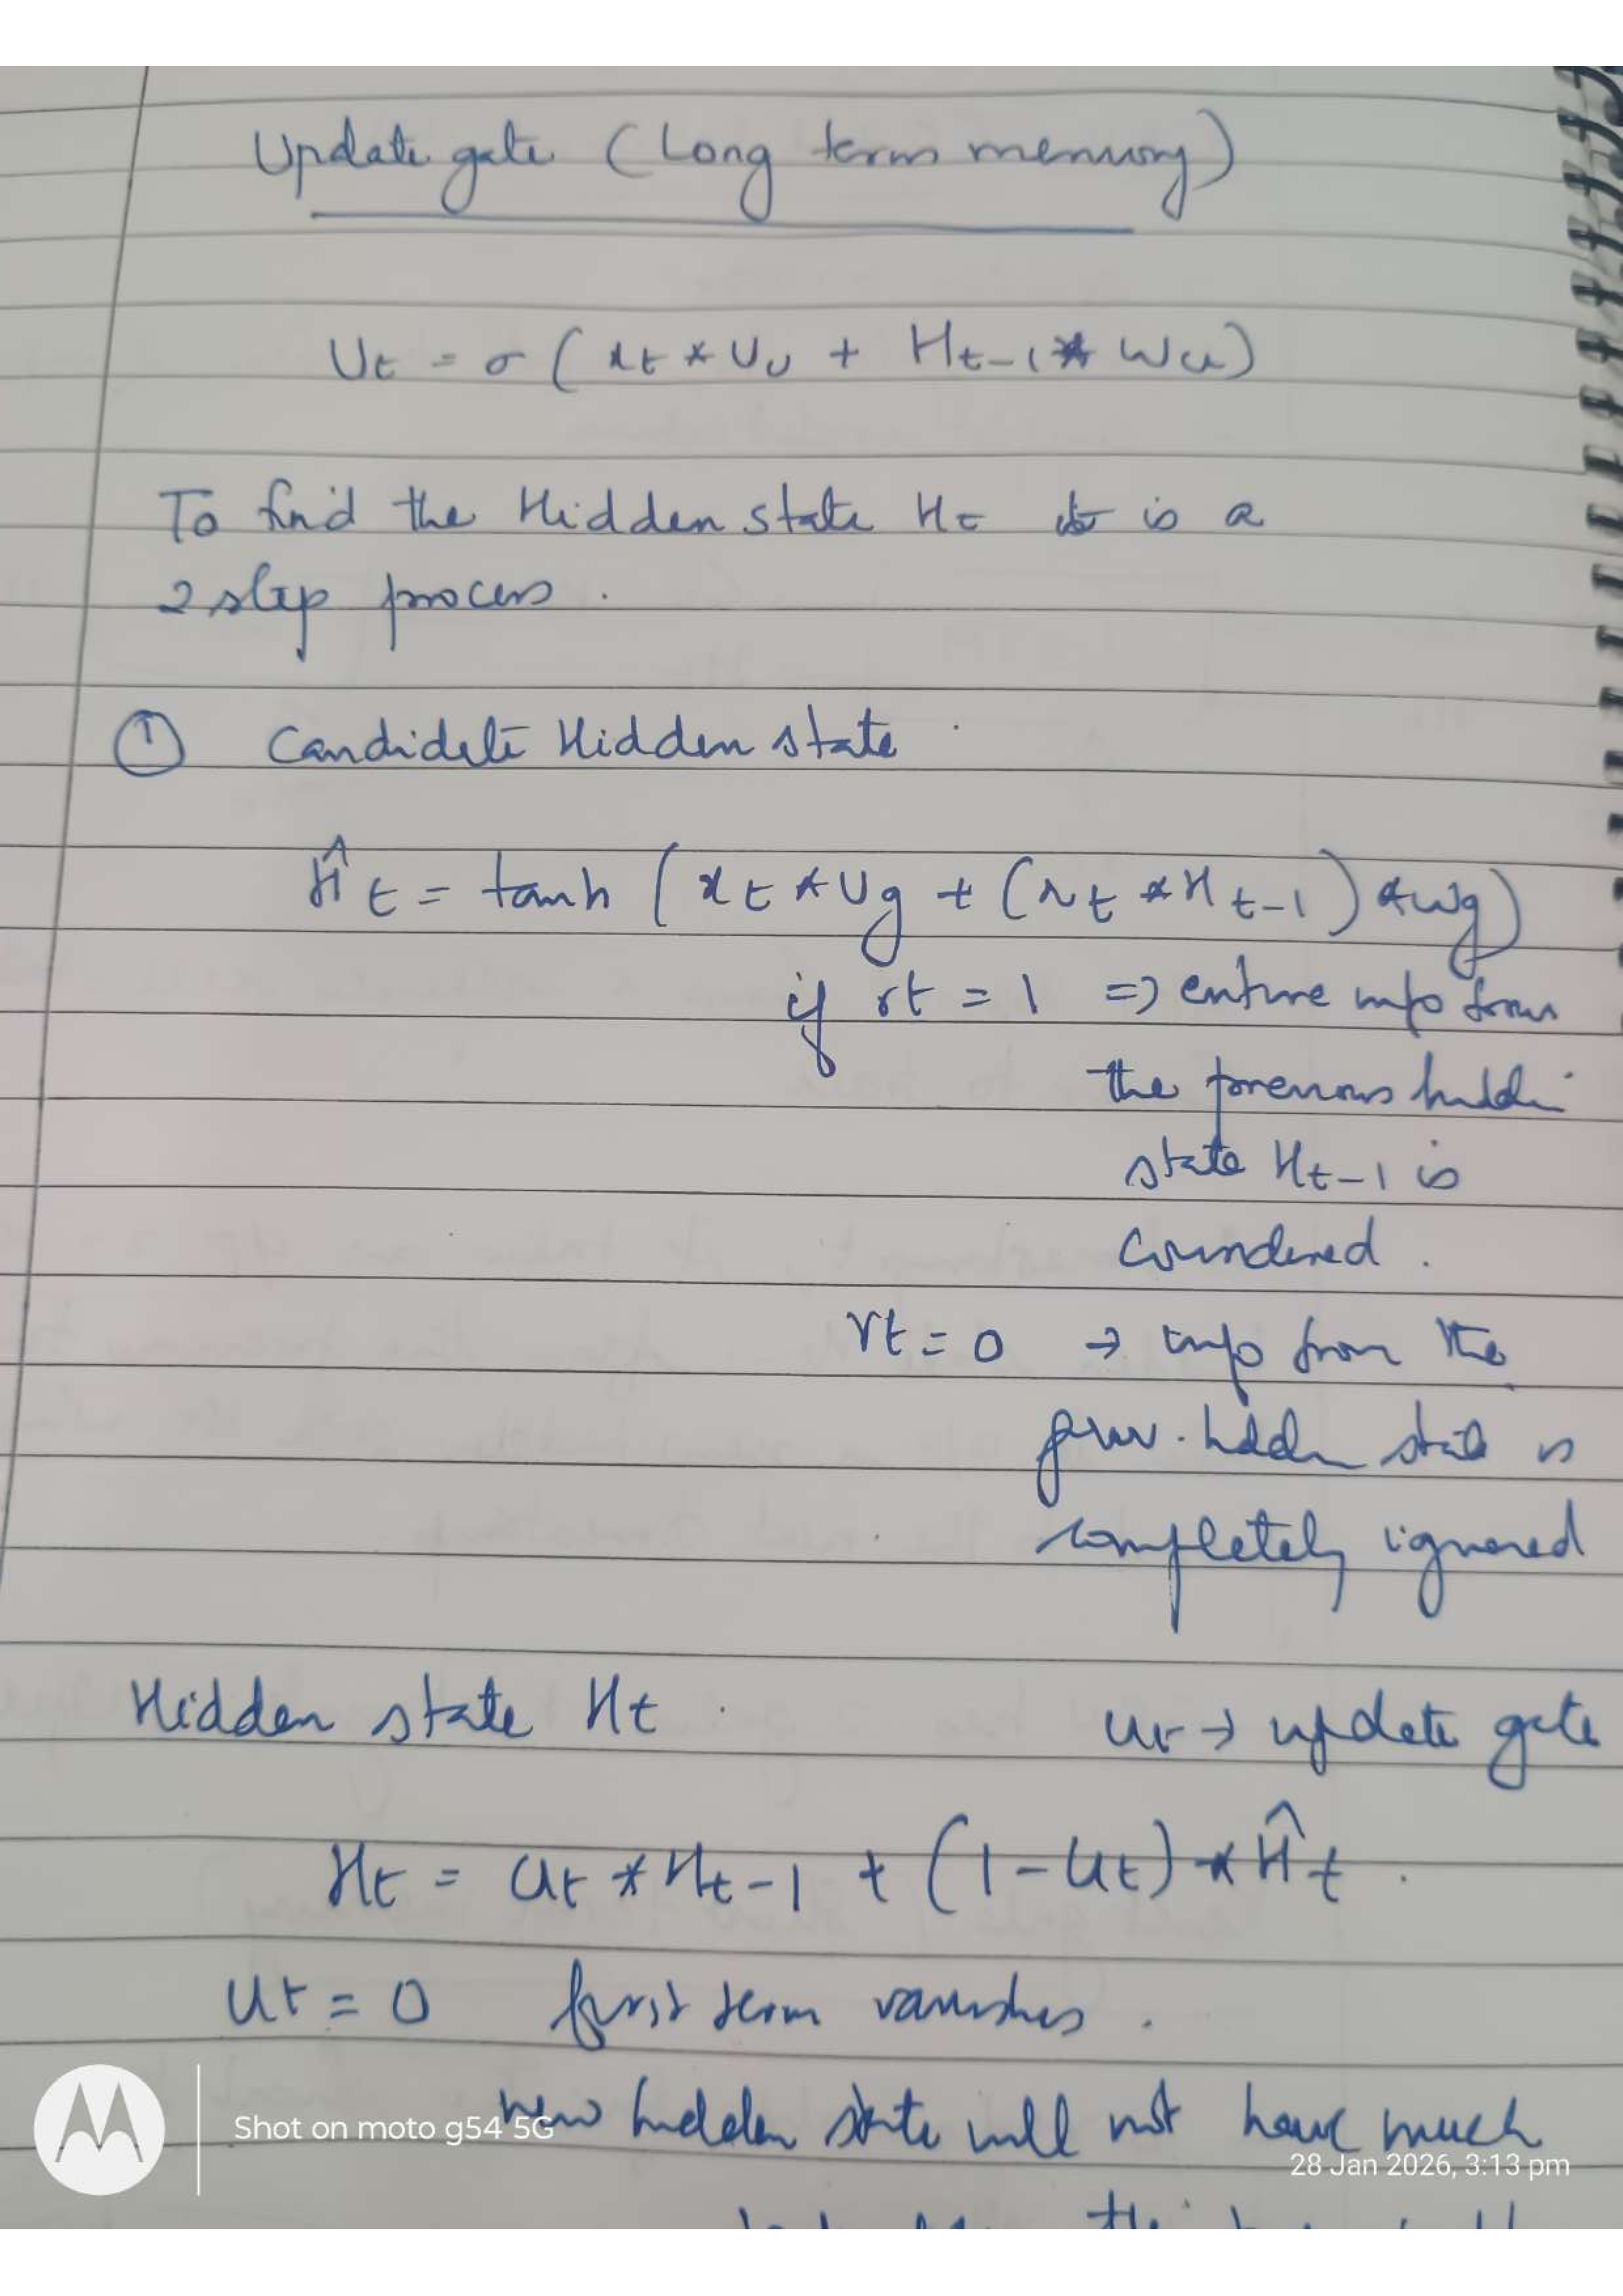 Update gate (Long term memory)
Ut = σ ( xt * Uu + Ht-1 * Wu )
To find the Hidden state Ht it is a
2 step process .
① Candidate Hidden state .
Ĥt = tanh ( xt * Ug + (rt * Ht-1) * Wg )
if rt = 1 => entire info from
the previous hidden
state Ht-1 is
considered .
rt = 0 → info from the
prev. hidden state is
completely ignored
Hidden state Ht .
ut → update gate
Ht = Ut * Ht-1 + (1 - Ut) * Ĥt .
Ut = 0 first term vanishes .
new hidden state will not have much
Shot on moto g54 5G
28 Jan 2026, 3:13 pm